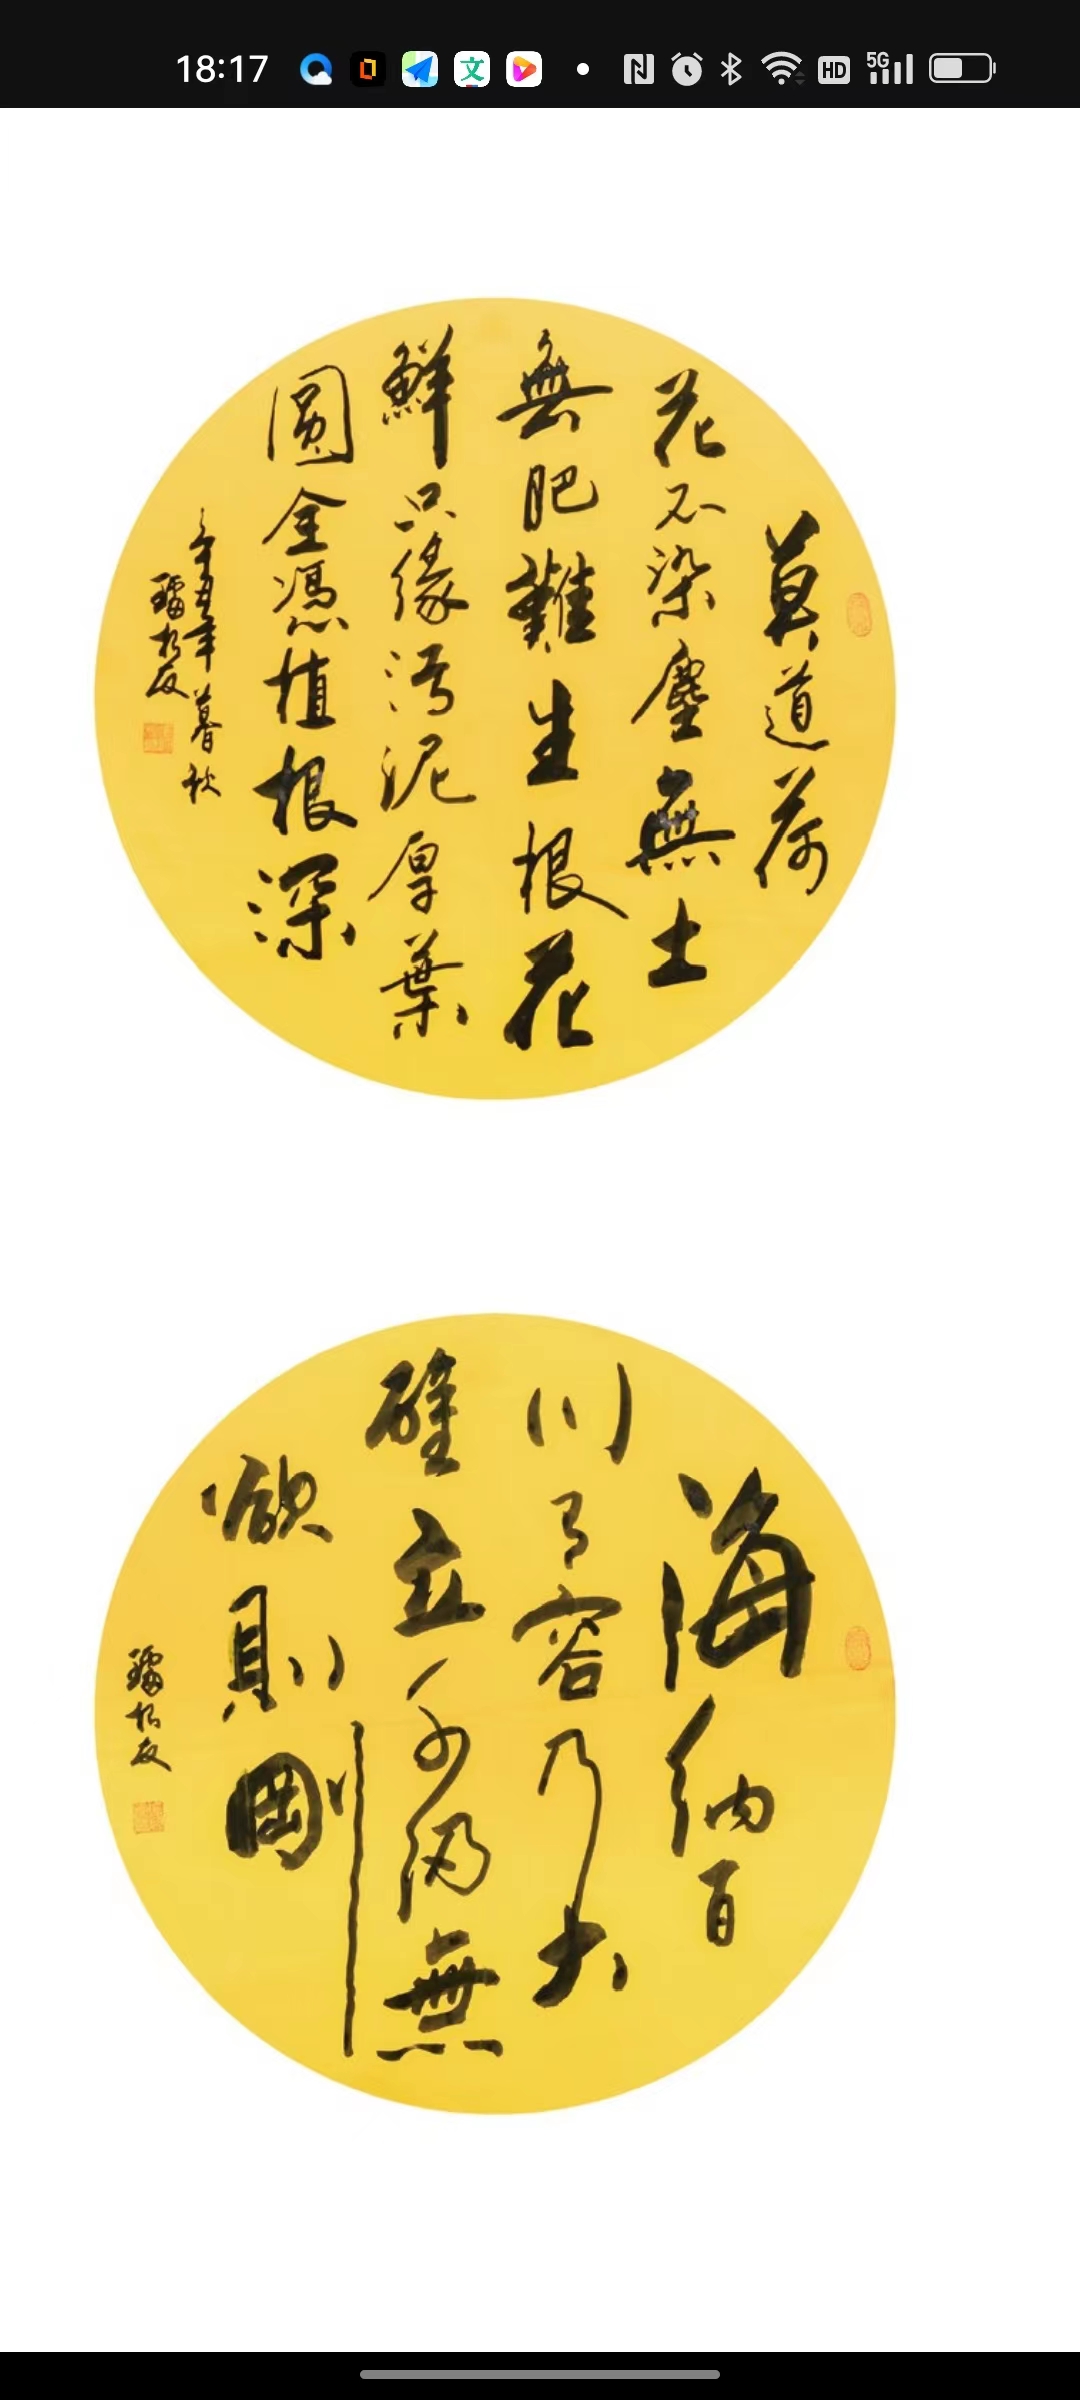 18:17
HD
5G
莫道荷
花不染塵無土
無肥難生根花
鮮只緣污泥厚葉
圓全憑植根深
辛丑年暮秋
海納百
川有容乃大
壁立千仞無
欲則剛